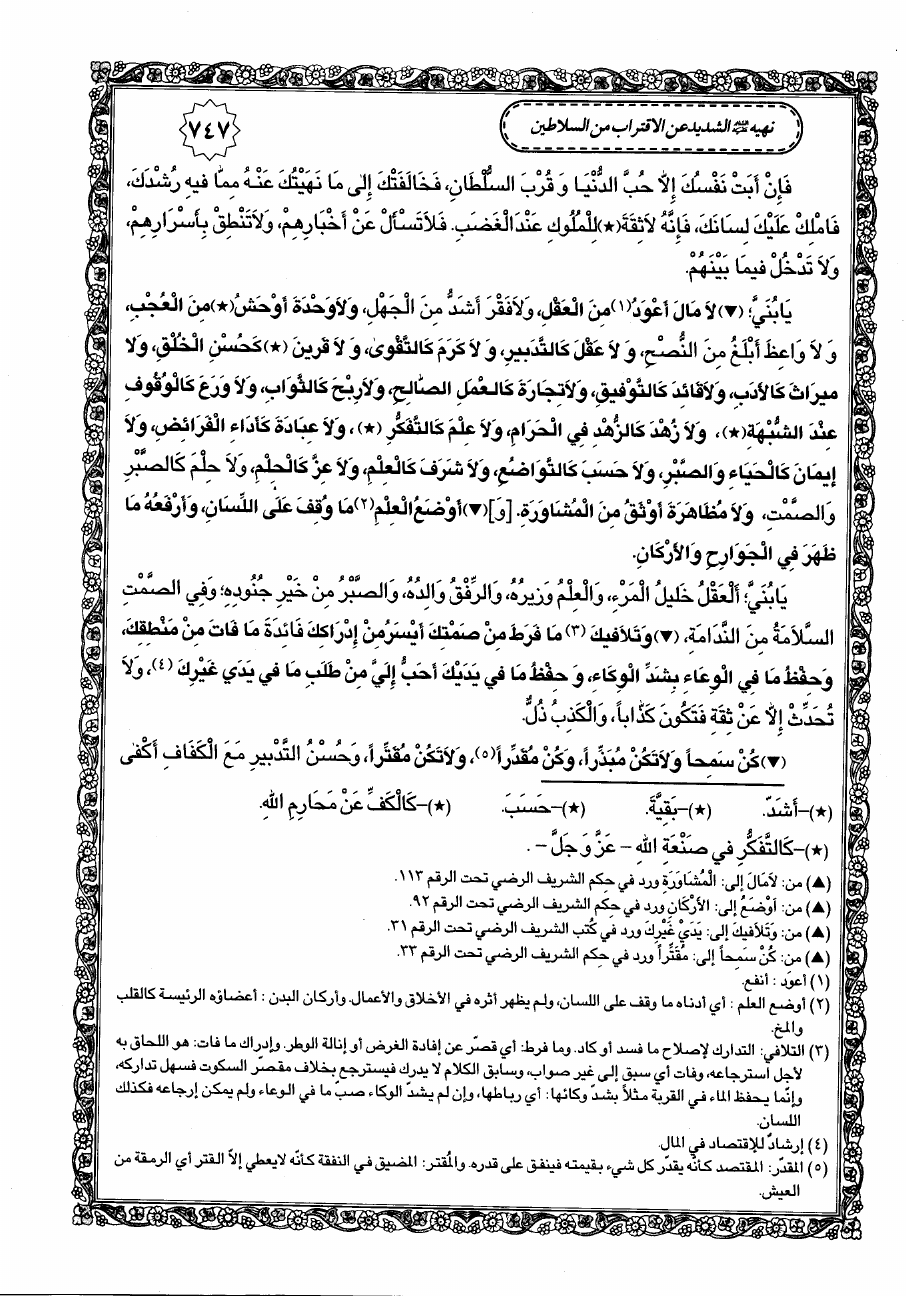 نهيه عليه السلام الشديد عن الاقتراب من السلاطين
٧٤٧
فَإِنْ أَبَتْ نَفْسُكَ إِلاَّ حُبَّ الدُّنْيَا وَ قُرْبَ السُّلْطَانِ، فَخَالَفَتْكَ إِلَى مَا نَهَيْتُكَ عَنْهُ مِمَّا فيهِ رُشْدُكَ،
فَامْلِكْ عَلَيْكَ لِسَانَكَ، فَإِنَّهُ لاَثِقَةَ(★)لِلْمُلُوكِ عِنْدَالْغَضَبِ. فَلاَتَسْأَلْ عَنْ أَخْبَارِهِمْ، وَلاَتَنْطِقْ بِأَسْرَارِهِمْ،
وَلاَ تَدْخُلْ فيمَا بَيْنَهُمْ.
يَابُنَيَّ؛ (▼)لاَ مَالَ أَعْوَدُ(١)مِنَ الْعَقْلِ، وَلاَفَقْرَ أَشَدُّ مِنَ الْجَهْلِ، وَلاَوَحْدَةَ أَوْحَشُ(★)مِنَ الْعُجْبِ،
وَ لاَ وَاعِظَ أَبْلَغُ مِنَ النُّصْحِ، وَ لاَ عَقْلَ كَالتَّدْبيرِ، وَ لاَ كَرَمَ كَالتَّقْوى، وَ لاَ قَرينَ (★)كَحُسْنِ الْخُلْقِ، وَ لاَ
ميرَاثَ كَالأَدَبِ، وَلاَقَائِدَ كَالتَّوْفيقِ، وَلاَتِجَارَةَ كَالْعَمَلِ الصَّالِحِ، وَلاَرِبْحَ كَالثَّوَابِ، وَلاَ وَرَعَ كَالْوُقُوفِ
عِنْدَ الشُّبْهَةِ(★)، وَلاَ زُهْدَ كَالزُّهْدِ فِي الْحَرَامِ، وَلاَ عِلْمَ كَالتَّفَكُّرِ (★)، وَلاَ عِبَادَةَ كَأَدَاءِ الْفَرَائِضِ، وَلاَ
إيمَانَ كَالْحَيَاءِ وَالصَّبْرِ، وَلاَ حَسَبَ كَالتَّوَاضُعِ، وَلاَ شَرَفَ كَالْعِلْمِ، وَلاَ عِزَّ كَالْحِلْمِ، وَلاَ حِلْمَ كَالصَّبْرِ
وَالصَّمْتِ، وَلاَ مُظَاهَرَةَ أَوْثَقُ مِنَ الْمُشَاوَرَةِ. [وَ](▼)أَوْضَعُ الْعِلْمِ(٢)مَا وُقِفَ عَلَى اللِّسَانِ، وَأَرْفَعُهُ مَا
ظَهَرَ فِي الْجَوَارِحِ وَالأَرْكَانِ.
يَابُنَيَّ؛ أَلْعَقْلُ خَليلُ الْمَرْءِ، وَالْعِلْمُ وَزيرُهُ، وَالرِّفْقُ وَالِدُهُ، وَالصَّبْرُ مِنْ خَيْرِ جُنُودِهِ؛ وَفِي الصَّمْتِ
السَّلاَمَةُ مِنَ النَّدَامَةِ، (▼)وَتَلاَفيكَ (٣) مَا فَرَطَ مِنْ صَمْتِكَ أَيْسَرُ مِنْ إِدْرَاكِكَ فَائِدَةَ مَا فَاتَ مِنْ مَنْطِقِكَ،
وَحِفْظُ مَا فِي الْوِعَاءِ بِشَدِّ الْوِكَاءِ، وَ حِفْظُ مَا في يَدَيْكَ أَحَبُّ إِلَيَّ مِنْ طَلَبِ مَا في يَدَي غَيْرِكَ (٤)، وَلاَ
تُحَدِّثْ إِلاَّ عَنْ ثِقَةٍ فَتَكُونَ كَذَّاباً، وَالْكَذِبُ ذُلٌّ.
(▼)كُنْ سَمِحاً وَلاَتَكُنْ مُبَذِّراً، وَكُنْ مُقَدِّراً(٥)، وَلاَتَكُنْ مُقَتِّراً، وَحُسْنُ التَّدْبيرِ مَعَ الْكَفَافِ أَكْفى
(★)-أَشَدّ. (★)-بَقِيَّةَ. (★)-حَسَبَ. (★)-كَالْكَفِّ عَنْ مَحَارِمِ اللهِ.
(★)-كَالتَّفَكُّرِ في صَنْعَةِ اللهِ - عَزَّ وَ جَلَّ - .
(▲) من: لاَمَالَ إلى: الْمُشَاوَرَةِ ورد في حكم الشريف الرضي تحت الرقم ١١٣.
(▲) من: أَوْضَعُ إلى: الأَرْكَانِ ورد في حكم الشريف الرضي تحت الرقم ٩٢.
(▲) من: وَتَلاَفيكَ إلى: يَدَيْ غَيْرِكَ ورد في كُتب الشريف الرضي تحت الرقم ٣١.
(▲) من: كُنْ سَمِحاً إلى: مُقَتِّراً ورد في حكم الشريف الرضي تحت الرقم ٣٣.
(١) أعوَد : أنفع.
(٢) أوضع العلم : أي أدناه ما وقف على اللسان، ولم يظهر أثره في الأخلاق والأعمال. وأركان البدن : أعضاؤه الرئيسة كالقلب
والمخ.
(٣) التلافي: التدارك لإصلاح ما فسد أو كاد. وما فرط: أي قصّر عن إفادة الغرض أو إنالة الوطر. وإدراك ما فات: هو اللحاق به
لأجل استرجاعه، وفات أي سبق إلى غير صواب، وسابق الكلام لا يدرك فيسترجع بخلاف مقصّر السكوت فسهل تداركه،
وإنّما يحفظ الماء في القربة مثلاً بشدّ وكائها: أي رباطها، وإن لم يشدّ الوكاء صبّ ما في الوعاء ولم يمكن إرجاعه فكذلك
اللسان.
(٤) إرشادٌ للإقتصاد في المال.
(٥) المقدّر: المقتصد كأنّه يقدّر كل شيء بقيمته فينفق على قدره. والمُقتر: المضيق في النفقة كأنّه لايعطي إلاّ القتر أي الرمقة من
العيش.